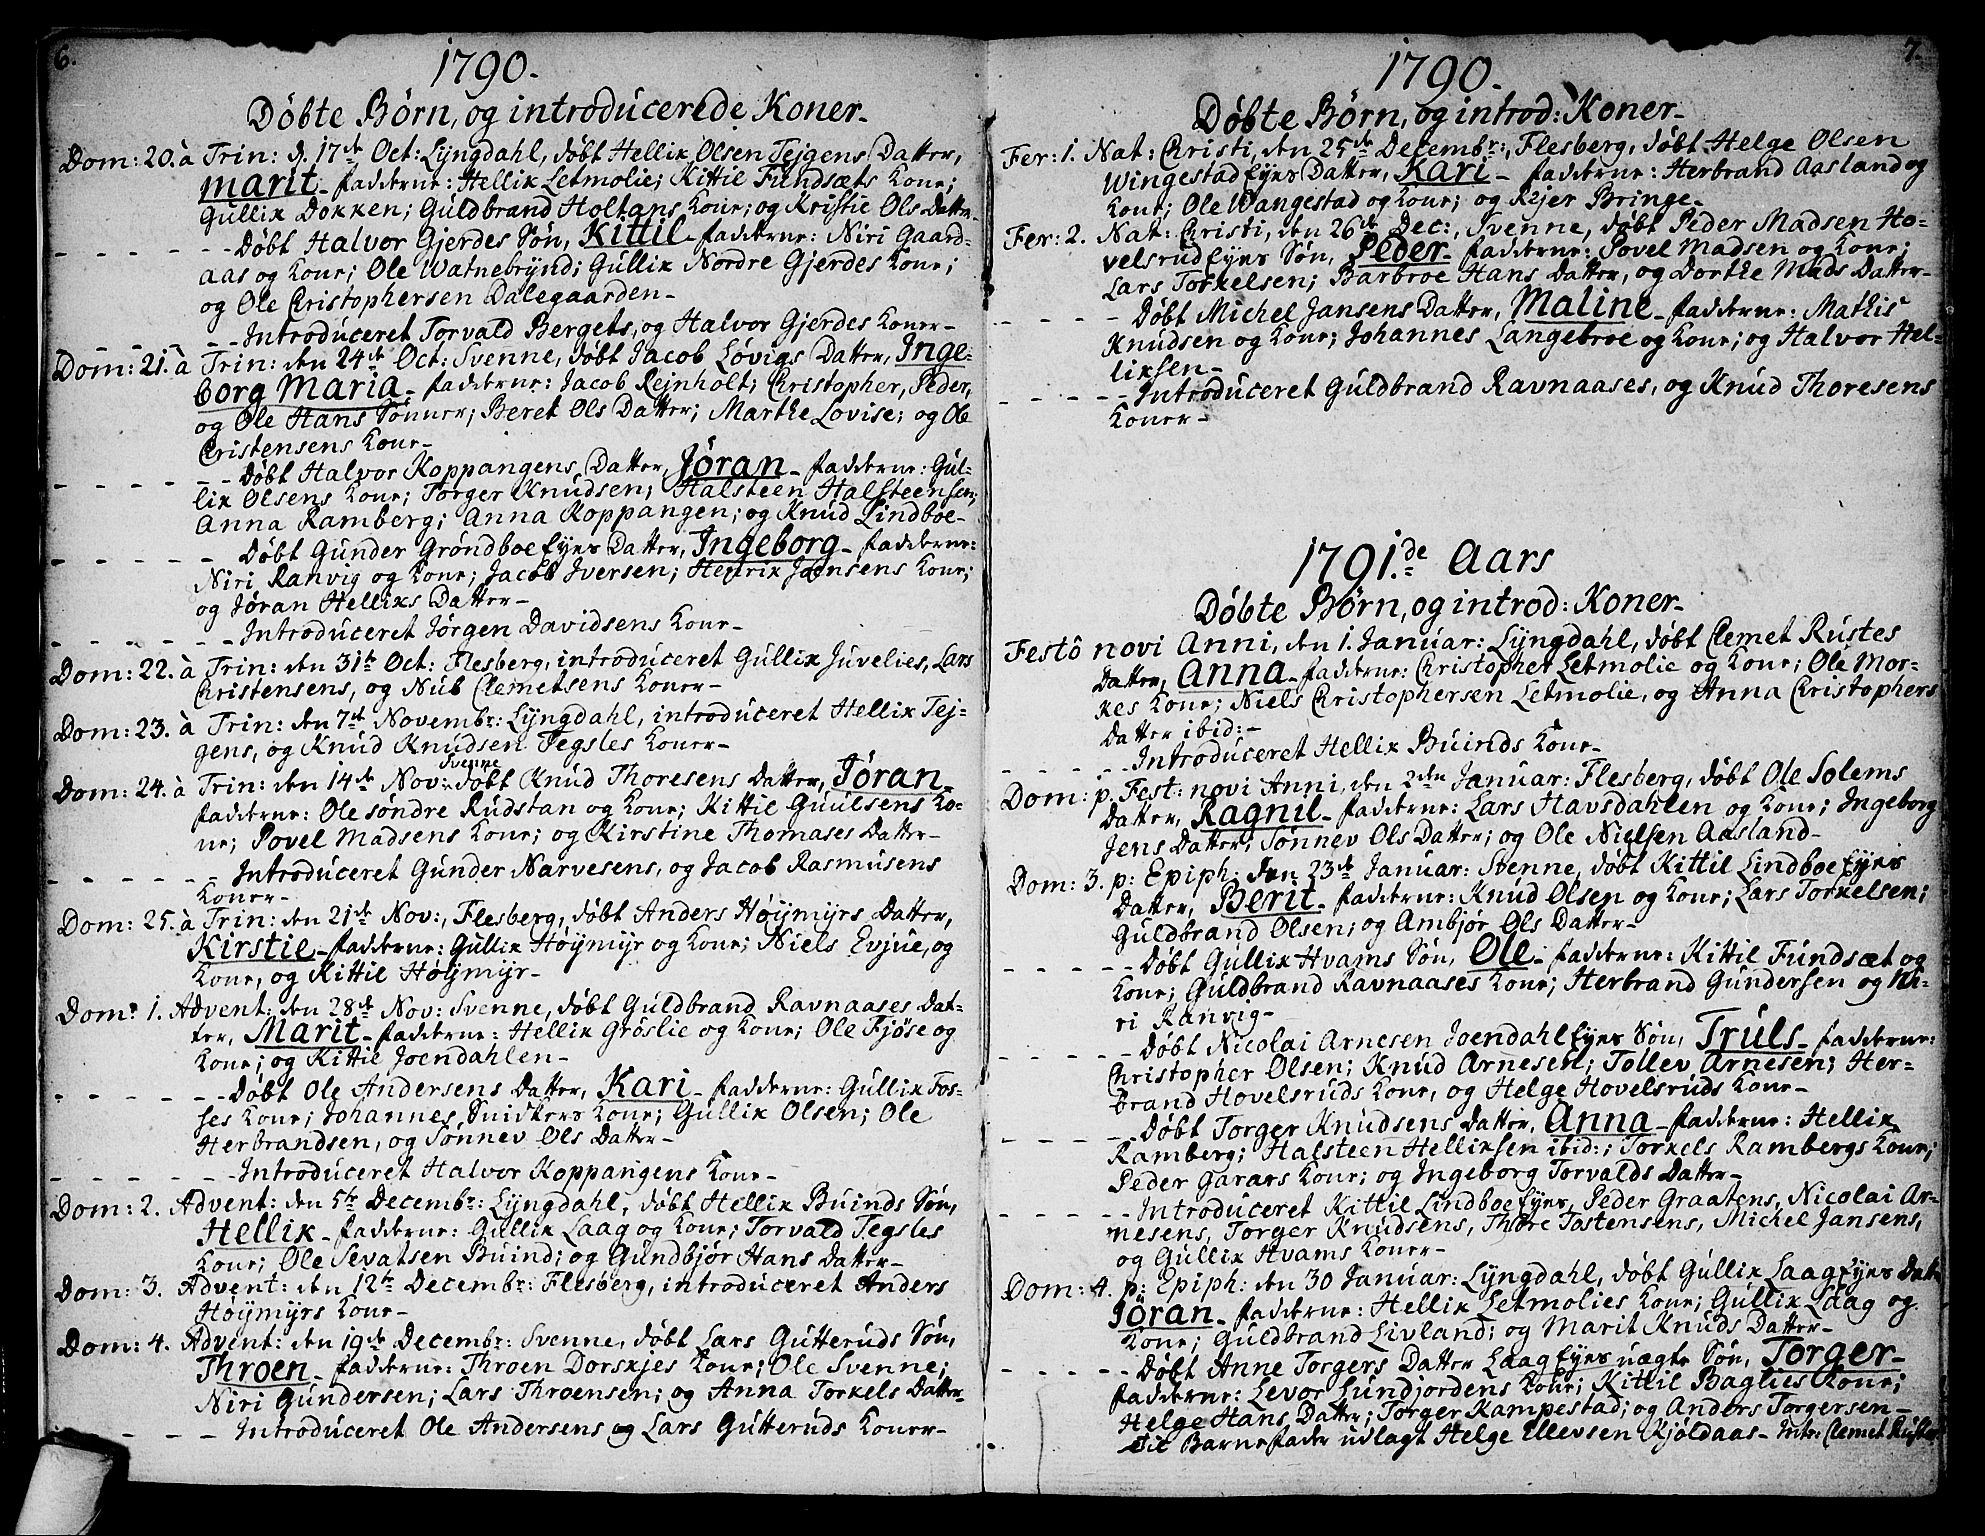 6.
1790.
Døbte Børn, og introducerede Koner.
Dom: 20. à Trin: d. 17de Oct: Lÿngdahl, døbt Hellix Olsen Tejgens Datter,
Marit. fadderne: Hellix Letmolie; Kittil Fundsæts Kone;
Gullix Dokken; Guldbrand Holtans Kone; og Kristie Ols Datter.
- - - - - Døbt Halvor Gjerdes Søn, Kittil. fadderne: Niri Gaard-
aas og Kone; Ole Watnebrÿnd; Gullix Nordre Gjerdes Kone;
og Ole Christophersen Dalegaarden.
- - - - - Introduceret Torvald Bergets, og Halvor Gjerdes Koner.
Dom: 21. à Trin: den 24de Oct: Svenne, døbt Jacob Løvigs Datter, Inge-
borg Maria. fadderne: Jacob Rejnholt; Christopher, Peder,
og Ole Hans Sønner; Beret Ols Datter; Marthe Lovise; og Ole
Christensens Kone.
- - - - - Døbt Halvor Koppangens Datter, Jöran. fadderne: Gul-
lix Olsens Kone; Torger Knudsen; Halsteen Halsteensen;
Anna Ramberg; Anna Koppangen; og Knud Lindboe.
- - - - - Døbt Gunder Grøndboe Eÿes Datter, Ingeborg. fadderne:
Niri Ranvig og Kone; Jacob Iversen; Henrik Jansens Kone;
og Jöran Hellixs Datter.
- - - - - Introduceret Jørgen Davidsens Kone.
Dom: 22. à Trin: den 31te Oct: Flesberg, introduceret Gullix Juvelies, Lars
Christensens, og Nub Clemetsens Koner.
Dom: 23. à Trin: den 7de Novembr: Lÿngdahl, introduceret Hellix Tej-
gens, og Knud Knudsen Tegsles Koner.
Svenne
Dom: 24. à Trin: den 14de Nov: døbt Knud Thoresens Datter, Jöran.
fadderne: Ole søndre Rudstan og Kone; Kittil Guulsens Ko-
ne; Povel Madsens Kone; og Kirstine Thomases Datter.
- - - - - Introduceret Gunder Narvesens, og Jacob Rasmusens
Koner.
Dom: 25. à Trin: den 21de Nov:, Flesberg, døbt Anders Høÿmÿrs Datter,
Kirstie. fadderne: Gullix Høÿmÿr og Kone; Niels Evjue, og
Kone, og Kittil Høÿmÿr.
Dom: 1. Advent: den 28de Nov: Svenne, døbt Guldbrand Ravnaases Dat-
ter, Marit. fadderne: Hellix Gröslie og Kone; Ole Fjöse og
Kone; og Kittil Joendahlen.
- - - - - Døbt Ole Andersens Datter, Kari. fadderne: Gullix Fos-
ses Kone; Johannes Snidkers Kone; Gullix Olsen; Ole
Herbrandsen, og Sønnev Ols Datter.
- - - - - Introduceret Halvor Koppangens Kone.
Dom: 2. Advent: den 5te Decembr: Lÿngdahl, døbt Hellix Buinds Søn,
Hellix. fadderne: Gullix Laag og Kone; Torvald Tegsles
Kone; Ole Sevatsen Buind; og Gundbjør Hans Datter.
Dom: 3. Advent: den 12te Decembr: Flesberg, introduceret Anders
Høÿmÿrs Kone.
Dom: 4. Advent: den 19de Decembr: Svenne, døbt Lars Gutteruds Søn,
Throen. fadderne: Throen Dorskjes Kone; Ole Svenne;
Niri Gundersen; Lars Throensen; og Anna Torkels Datter.
- - - - - Introduceret Ole Andersens og Lars Gutteruds Koner.
7.
1790.
Døbte Børn, og introd: Koner.
Fer: 1. Nat: Christi, den 25de Decembr:, Flesberg, døbt Helge Olsen
Wingestad Eÿes Datter, Kari. fadderne: Herbrand Aasland og
Kone; Ole Wangestad og Kone; og Rejer Bringe.
Fer: 2. Nat: Christi, den 26de Dec:, Svenne, døbt Peder Madsen Ho-
velsrud Eÿes Søn, Peder. fadderne: Povel Madsen og Kone;
Lars Torkelsen; Barbroe Hans Datter, og Dorthe Mads Datter.
- - - - - Døbt Michel Jansens Datter, Maline. fadderne: Mathis
Knudsen og Kone; Johannes Langebroe og Kone; og Halvor Hel-
lixsen.
- - - - - Introduceret Guldbrand Ravnaases, og Knud Thoresens
Koner.
1791.de Aars
Døbte Børn, og introd: Koner.
Festô novi Anni, den 1. Januar: Lÿngdahl, døbt Clemet Rustes
Datter, Anna. fadderne: Christopher Letmolie og Kone; Ole Mor-
kes Kone; Niels Christophersen Letmolie, og Anna Christophers
Datter ibid:
- - - - - Introduceret Hellix Buinds Kone.
Dom: p. Fest: novi Anni, den 2den Januar: Flesberg, døbt Ole Solems
Datter, Ragnil. fadderne: Lars Havsdahlen og Kone; Ingeborg
Jens Datter, Sønnev Ols Datter; og Ole Nielsen Aasland.
Dom: 3. p: Epiph: den 23de Januar: Svenne, døbt Kittil Lindboe Eÿes
Datter, Berit. fadderne: Knud Olsen og Kone; Lars Torkelsen;
Guldbrand Olsen; og Ambjør Ols Datter.
- - - - - Døbt Gullix Hvams Søn, Ole. fadderne: Kittil Fundsæt og
Kone; Guldbrand Ravnaases Kone; Herbrand Gundersen og Ni-
ri Ranvig.
- - - - - Døbt Nicolai Arnesen Joendahl Eÿes Søn, Truls. fadderne:
Christopher Olsen; Knud Arnesen; Tollev Arnesen; Her-
brand Hovelsruds Kone, og Helge Hovelsruds Kone.
- - - - - Døbt Torger Knudsens Datter, Anna. fadderne: Hellix
Ramberg; Halsteen Hellixsen ibid:; Torkels Rambergs Kone;
Peder Garars Kone; og Ingeborg Torvalds Datter.
- - - - - Introduceret Kittil Lindboe Eÿes, Peder Graatens, Nicolai Ar-
nesens, Torger Knudsens, Thore Tostensens, Michel Jansens,
og Gullix Hvams Koner.
Dom: 4. p: Epiph: den 30 Januar: Lÿngdahl, døbt Gullix Laag Eÿes Dat:
Jöran. fadderne: Hellix Letmolies Kone; Gullix Laag og
Kone; Guldbrand Livland; og Marit Knuds Datter.
- - - - - Døbt Anne Torgers Datter Laag Eÿes uægte Søn, Torger.
fadderne: Levor Lundjordens Kone; Kittil Baglies Kone;
Helge Hans Datter; Torger Kampestad; og Anders Torgersen.
Til Barnefader udlagt Helge Ellevsen Kjöldaas. Intr: Clemet Rustes